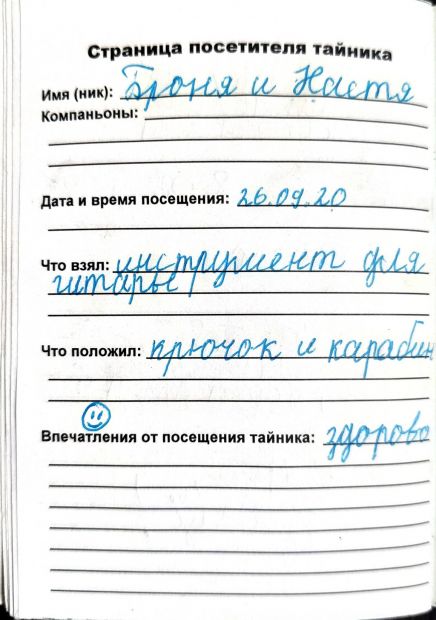 Страница посетителя тайника
Имя (ник): Броня и Настя
Компаньоны:
Дата и время посещения: 26.09.20
Что взял: инструмент для
гитары
Что положил: крючок и карабин
Впечатления от посещения тайника: здорово